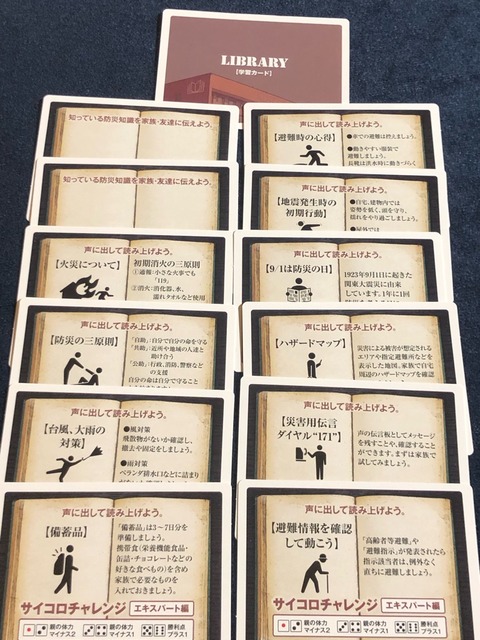 LIBRARY
[学習カード]
知っている防災知識を家族・友達に伝えよう。
知っている防災知識を家族・友達に伝えよう。
声に出して読み上げよう。
【火災について】
初期消火の三原則
①通報:小さな火事でも
「119」
②消火:消化器、水、
濡れタオルなど使用
声に出して読み上げよう。
【防災の三原則】
「自助」:自分で自分の命を守る
「共助」:近所や地域の人達と
助け合う
「公助」:行政、消防、警察など
の支援
自分の命は自分で守ること
声に出して読み上げよう。
【台風、大雨の
対策】
●風対策
飛散物がないか確認し、
撤去や固定をしましょう。
●雨対策
ベランダ排水口などに詰まり
声に出して読み上げよう。
【備蓄品】
「備蓄品」は3〜7日分を
準備しましょう。
携帯食(栄養機能食品・
缶詰・チョコレートなどの
好きな食べもの)を含め
家族で必要なものを
入れておきましょう。
サイコロチャレンジ エキスパート編
親の体力
マイナス2
親の体力
マイナス1
勝利点
プラス1
声に出して読み上げよう。
【避難時の心得】
●車での避難は控えましょう。
●動きやすい服装で
避難しましょう。
長靴は洪水時に動きづらく
声に出して読み上げよう。
【地震発生時の
初期行動】
●自宅、建物内では
姿勢を低く、頭を守り、
揺れをやり過ごしましょう。
●屋外では
声に出して読み上げよう。
【9/1は防災の日】
1923年9月1日に起きた
関東大震災に由来
しています。1年に1回
声に出して読み上げよう。
【ハザードマップ】
災害による被害が想定される
エリアや指定避難所などを
表示した地図。家族で自宅
周辺のハザードマップを確認
声に出して読み上げよう。
【災害用伝言
ダイヤル“171”】
声の伝言板としてメッセージ
を残すことや、確認すること
ができます。まずは家族で
試してみましょう。
声に出して読み上げよう。
【避難情報を確認
して動こう】
「高齢者等避難」や
「避難指示」が発表されたら
指示該当者は、例外なく
直ちに避難しましょう。
サイコロチャレンジ エキスパート編
親の体力
マイナス2
親の体力
マイナス1
勝利点
プラス1